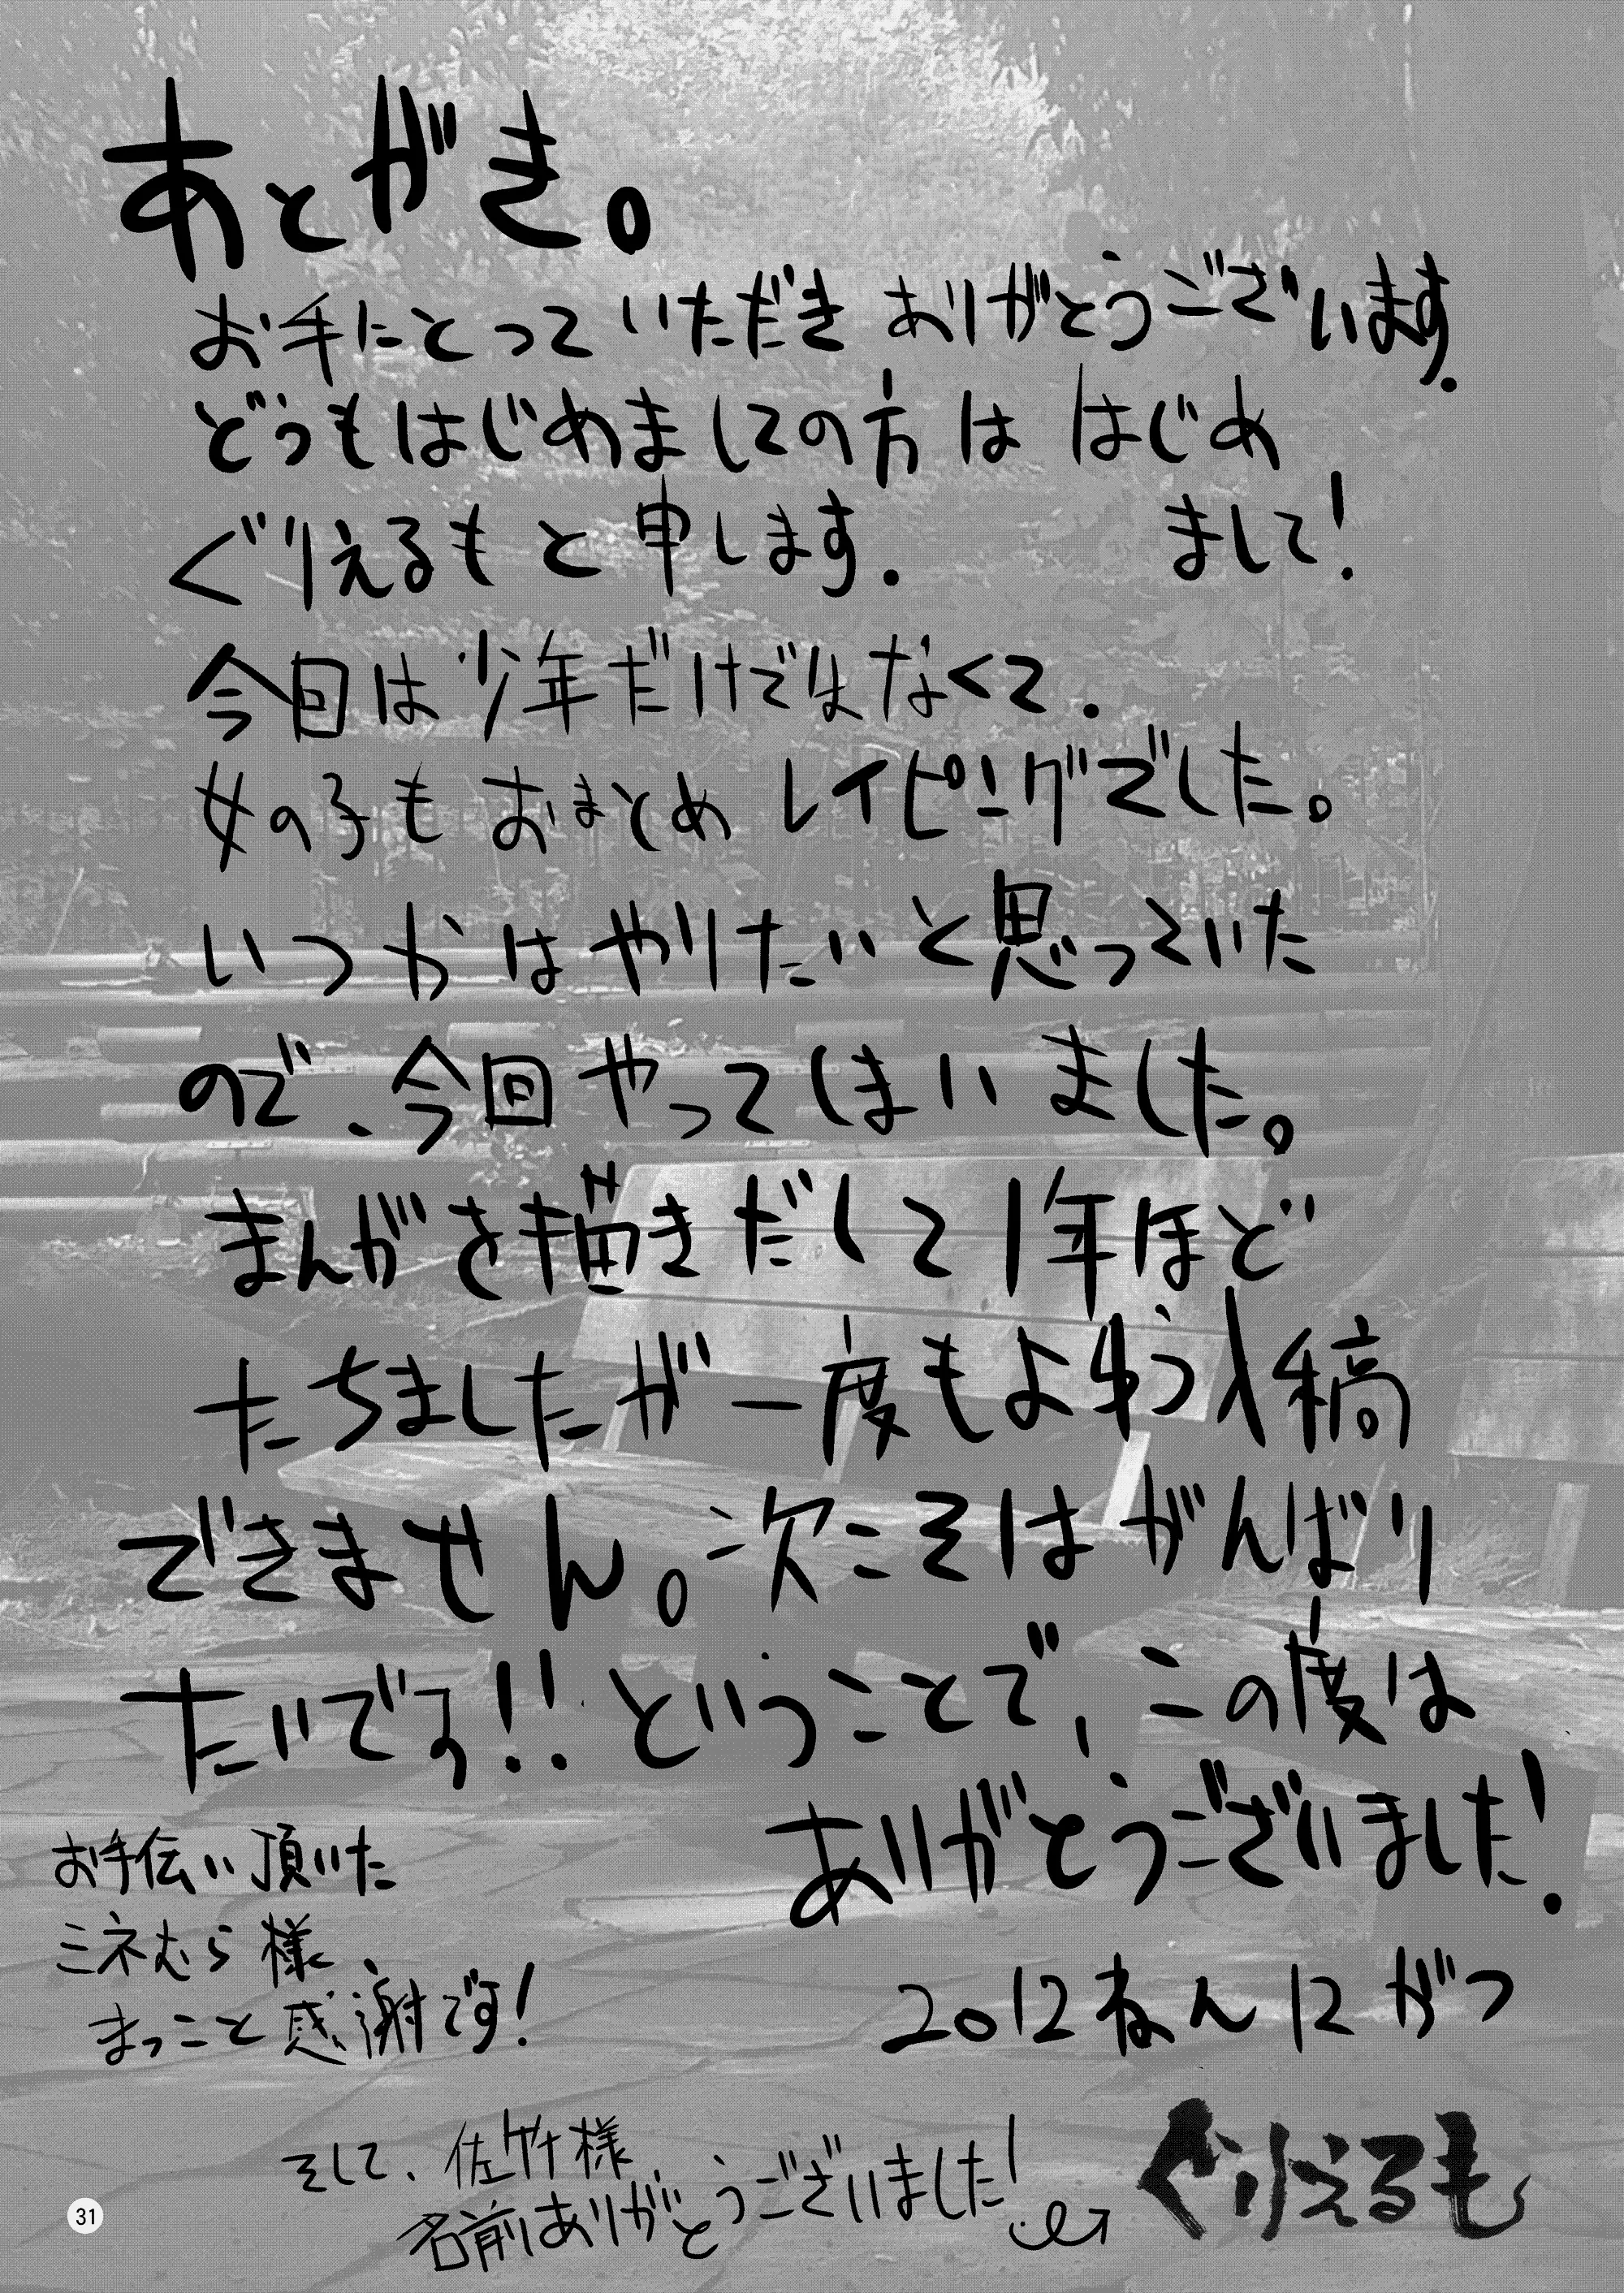 あとがき。
お手にとっていただき ありがとうございます.
どうもはじめましての方は はじめ
まして!
ぐりえるもと申します.
今回は少年だけではなくて.
女の子もおまとめ レイピングでした。
いつかはやりたいと思っていた
ので、今回やってしまいました。
まんがを描きだして1年ほど
たちましたが一度もよゆう入稿
できません。次こそはがんばり
たいです!! ということで、この度は
ありがとうございました!
お手伝い頂いた
ミネむら様、
まっこと感謝です!
2012ねん12がつ
そして、佐竹様
名前ありがとうございました!
ぐりえるも
31